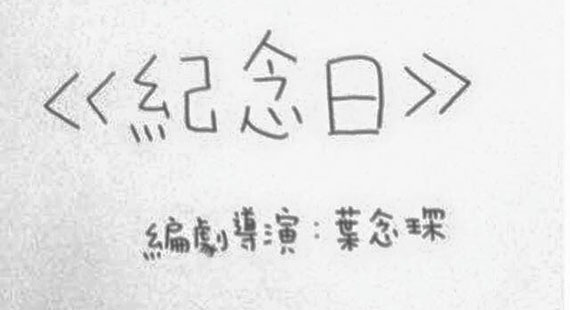 <<紀念日>>
編劇導演:葉念琛